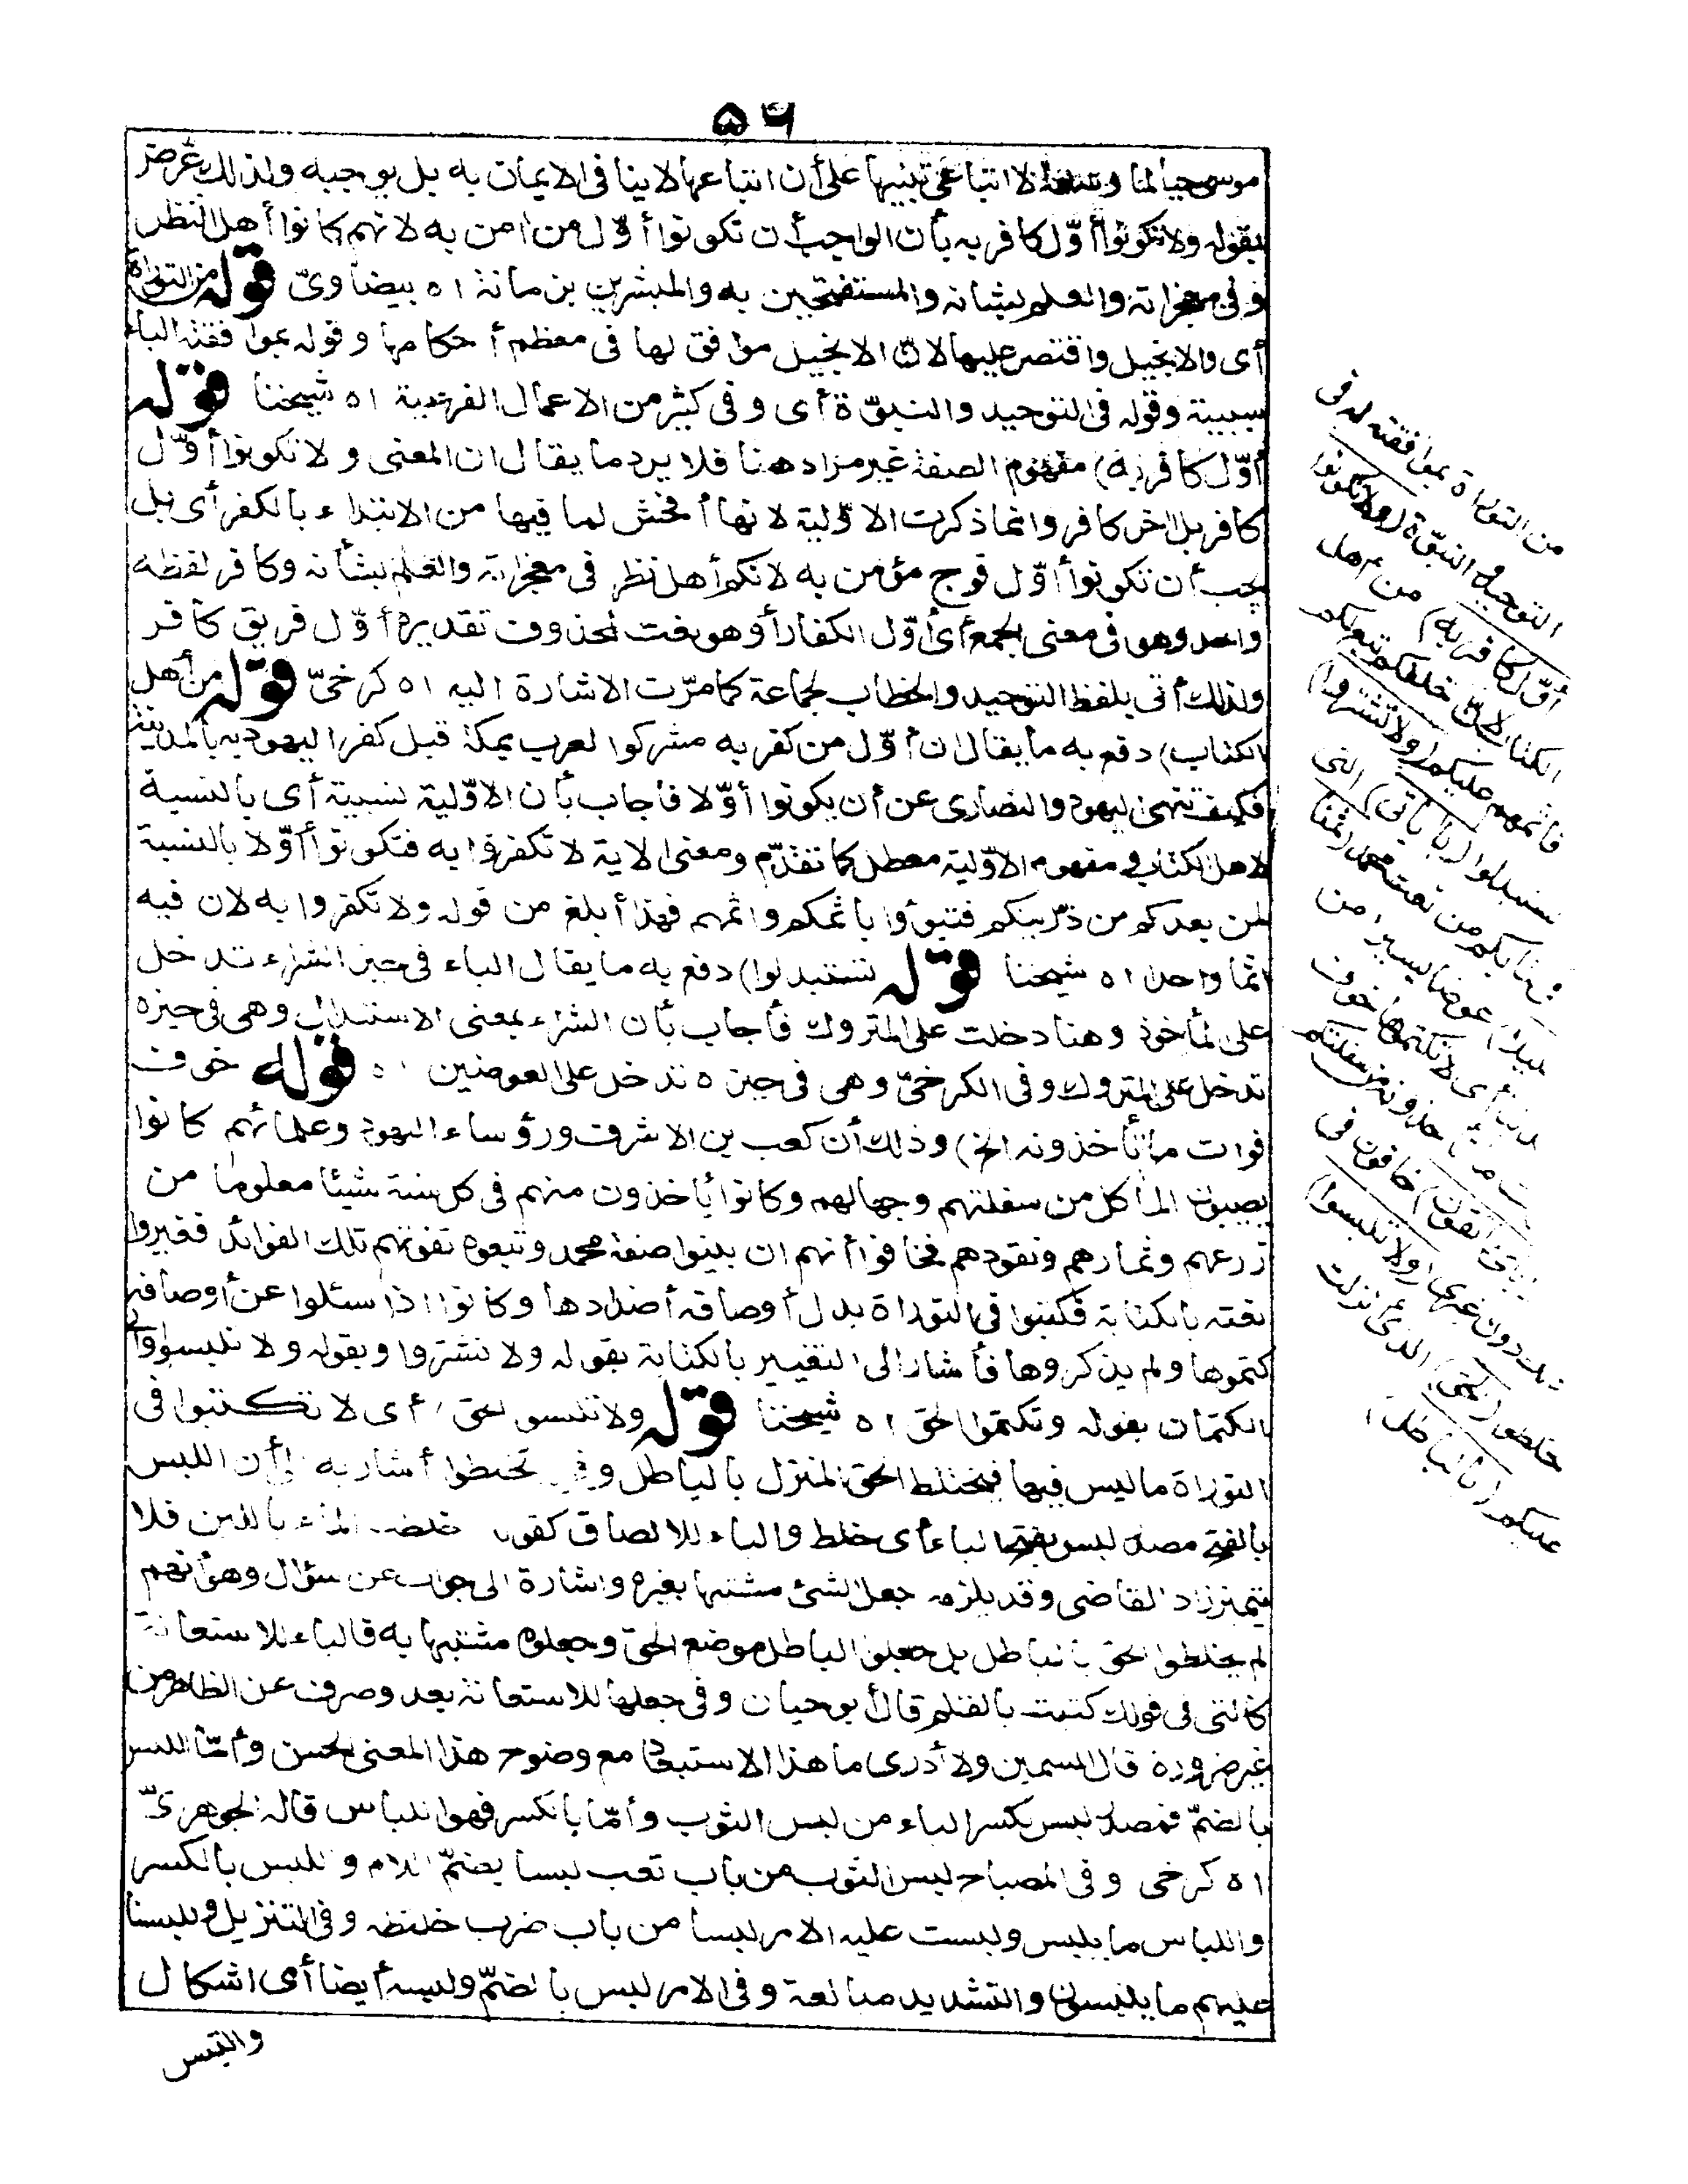 ٥٦
موسى حيا لما وسعه الا اتباعى تنبيها على أن اتباعها لا ينافى الايمان به بل يوجبه ولذلك عرض
بقوله ولا تكونوا أوّل كافر به بأن الواجب أن تكونوا أوّل من امن به لانهم كانوا أهل النظر
فى معجزاته والعلم بشأنه والمستفتحين به والمبشرين بزمانه اه بيضاوىّ قوله من التوراة
أى والانجيل واقتصر عليها لانّ الانجيل موافق لها فى معظم أحكامها وقوله بموافقته الباء
سببية وقوله فى التوحيد والنبوّة أى وفى كثير من الاعمال الفرعية اه شيخنا قوله
أوّل كافر به) مفهوم الصفة غير مراد هنا فلا يرد ما يقال ان المعنى ولا تكونوا أوّل
كافر بل اخر كافر وانما ذكرت الاوّلية لانها أفحش لما فيها من الابتداء بالكفر أى بل
يجب أن تكونوا أوّل فوج مؤمن به لانكم أهل نظر فى معجزاته والعلم بشأنه وكافر لفظه
واحد وهو فى معنى الجمع أى أوّل الكفار أو هو نعت لمحذوف تقديره أوّل فريق كافر
ولذلك أتى بلفظ التوحيد والخطاب لجماعة كما مرّت الاشارة اليه اه كرخىّ قوله من أهل
الكتاب) دفع به ما يقال ان أوّل من كفر به مشركوا لعرب بمكة قبل كفر اليهود به بالمدينة
فكيف تنهى اليهود والنصارى عن أن يكونوا أوّلا فأجاب بأن الاوّلية نسبية أى بالنسبة
لاهل الكتاب فى مفهوم الاوّلية معطل كما تقدّم ومعنى الاية لا تكفروا به فتكونوا أوّلا بالنسبة
لمن بعدكم من ذرّيتكم فتبوؤا باثمكم واثمهم فهذا أبلغ من قوله ولا تكفروا به لان فيه
اثما واحدا اه شيخنا قوله تستبدلوا) دفع به ما يقال الباء فى حيز الشراء تدخل
على المأخوذ وهنا دخلت على المتروك فأجاب بأن الشراء بمعنى الاستبدال وهى فى حيزه
تدخل على المتروك وفى الكرخىّ وهى فى حيزه تدخل على العوضين اه قوله خوف
فوات ما تأخذونه الخ) وذلك أن كعب بن الاشرف ورؤساء اليهود وعلمائهم كانوا
يصيبون المأكل من سفلتهم وجهالهم وكانوا يأخذون منهم فى كل سنة شيئا معلوما من
زرعهم وثمارهم ونقودهم فخافوا أنهم ان بينوا صفة محمد وتبعوه تفوتهم تلك الفوائد فغيروا
نعته بالكتابة فكتبوا فى التوراة بدل أوصافه أضدادها وكانوا اذا سئلوا عن أوصافه
كتموها ولم يذكروها فأشار الى التغيير بالكتابة بقوله ولا تشتروا وبقوله ولا تلبسوا والى
الكتمان بقوله وتكتموا الحق اه شيخنا قوله ولا تلبسوا الحق) أى لا تكتبوا فى
التوراة ما ليس فيها فيختلط الحق المنزل بالباطل وفى تخلطوا أشار به الى أن اللبس
بالفتح مصدر لبس بفتح الباء أى خلط والباء للالصاق كقوله خلطت الماء باللبن فلا
يتميز زاد القاضى وقد يلزمه جعل الشئ مشتبها بغيره واشارة الى جواب عن سؤال وهو أنهم
لم يخلطوا الحق بالباطل بل جعلوا الباطل موضع الحق وجعلوه مشتبها به فالباء للاستعانة
كالتى فى قولك كتبت بالقلم قال أبو حيان وفى جعلها للاستعانة بعد وصرف عن الظاهر من
غير ضرورة قال السمين ولا أدرى ما هذا الاستبعاد مع وضوح هذا المعنى الحسن وأمّا اللبس
بالضمّ فمصدر لبس بكسر الباء من لبس الثوب وأمّا بالكسر فهو اللباس قاله الجوهرىّ
اه كرخى وفى المصباح لبس الثوب من باب تعب لبسا بضمّ اللام واللبس بالكسر
واللباس ما يلبس ولبست عليه الامر لبسا من باب ضرب خلطه وفى التنزيل وللبسنا
عليهم ما يلبسون والتشديد مبالغة وفى الامر لبس بالضمّ ولبسة أيضا أى اشكال
والتبس
من التوراة بموافقته له فى
التوحيد والنبوّة (ولا تكونوا
أوّل كافر به) من أهل
الكتاب لانّ خلفكم تبع لكم
فاثمهم عليكم (ولا تشتروا)
تستبدلوا (بأياتى) التى
فى كتابكم من نعت محمد (ثمنا
قليلا) عوضا يسيرا من
الدنيا أى لا تكتموها خوف
فوات ما تأخذونه من سفلتكم
(واياى فاتقون) خافون فى
ذلك دون غيرى (ولا تلبسوا)
تخلطوا (الحق) الذى أنزلت
عليكم (بالباطل)